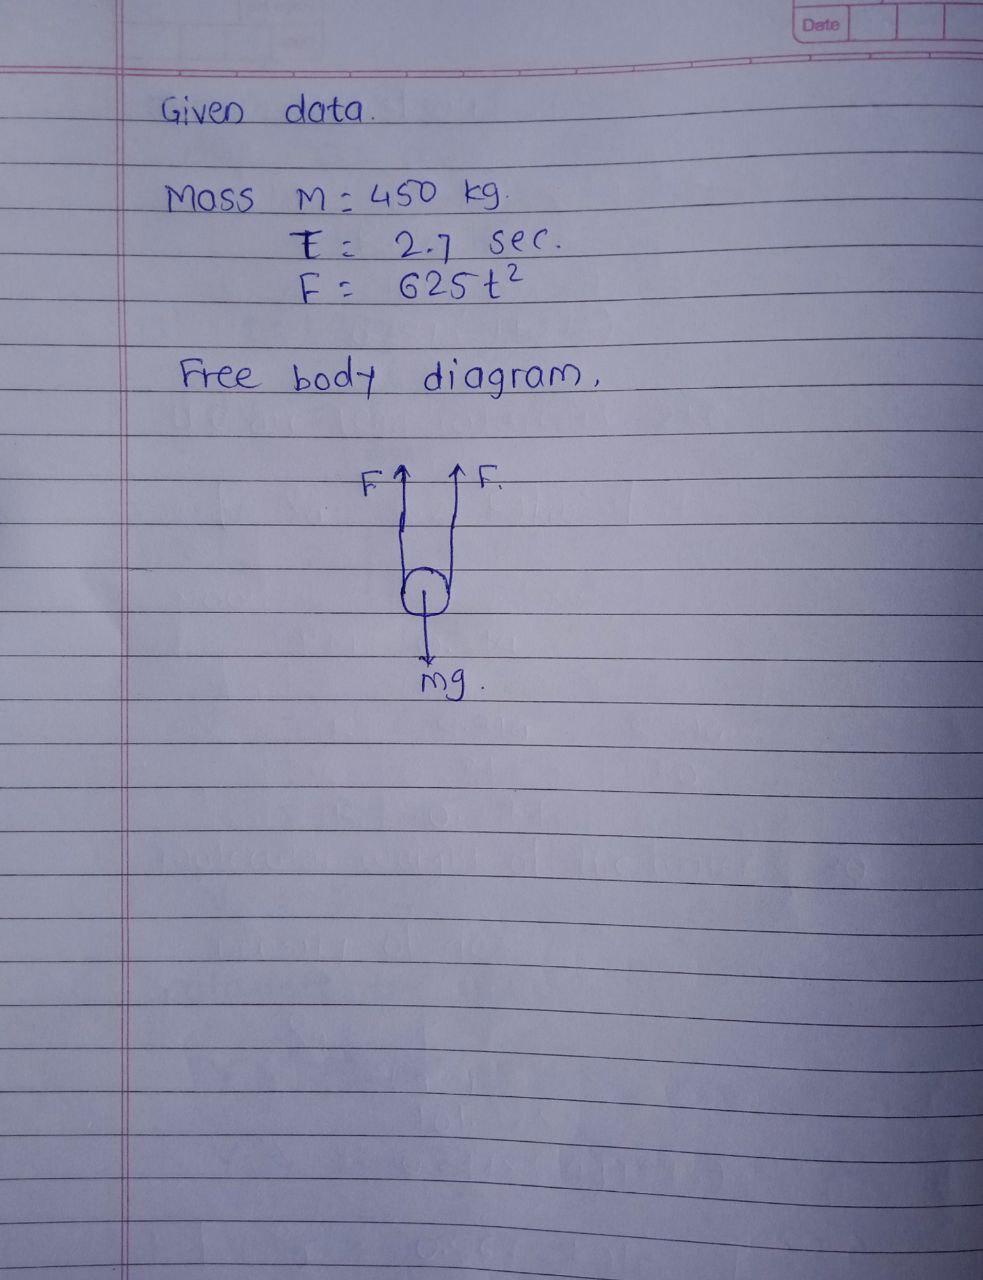 Date
Given data.
Mass M = 450 kg.
t = 2.7 sec.
F = 625t²
Free body diagram,
F F.
mg.